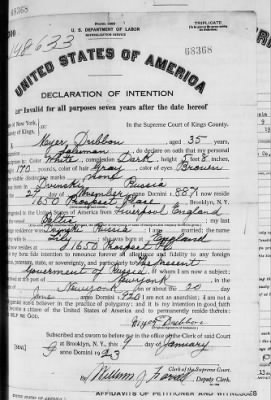 68368
TRIPLICATE
U. S. DEPARTMENT OF LABOR
NATURALIZATION SERVICE
148633
68368
UNITED STATES OF AMERICA
DECLARATION OF INTENTION
Invalid for all purposes seven years after the date hereof
of New York,
County of Kings,
In the Supreme Court of Kings County.
Meyer Dubbon, aged 35 years,
occupation Salesman, do declare on oath that my personal
description is: Color White, complexion Dark, height 5 feet 8 inches,
weight 170 pounds, color of hair Gray, color of eyes Brown
other visible distinctive marks none
Dvinsk, Russia
day of November, anno Domini 1887; I now reside
at 1650 Prospect Place, Brooklyn, N.Y.
I emigrated to the United States of America from Liverpool England
on the vessel Baltic; my last
foreign residence was Dvinsk Russia; I am married; the name
of my wife is Lily; she was born at England
and now resides at 1650 Prospect Pl
It is my bona fide intention to renounce forever all allegiance and fidelity to any foreign
prince, potentate, state, or sovereignty, and particularly to The Present
Government of Russia, of whom I am now a subject;
I arrived at the port of New York, in the
State of New York, on or about the 20 day
of June, anno Domini 1920; I am not an anarchist; I am not a
polygamist nor a believer in the practice of polygamy; and it is my intention in good faith
to become a citizen of the United States of America and to permanently reside therein:
SO HELP ME GOD.
Subscribed and sworn to before me in the office of the Clerk of said Court
at Brooklyn, N.Y., this 9 day of January
anno Domini 1923
Clerk of the Supreme Court.
By William J. , Deputy Clerk.
AFFIDAVITS OF PETITIONER AND WITNESSES